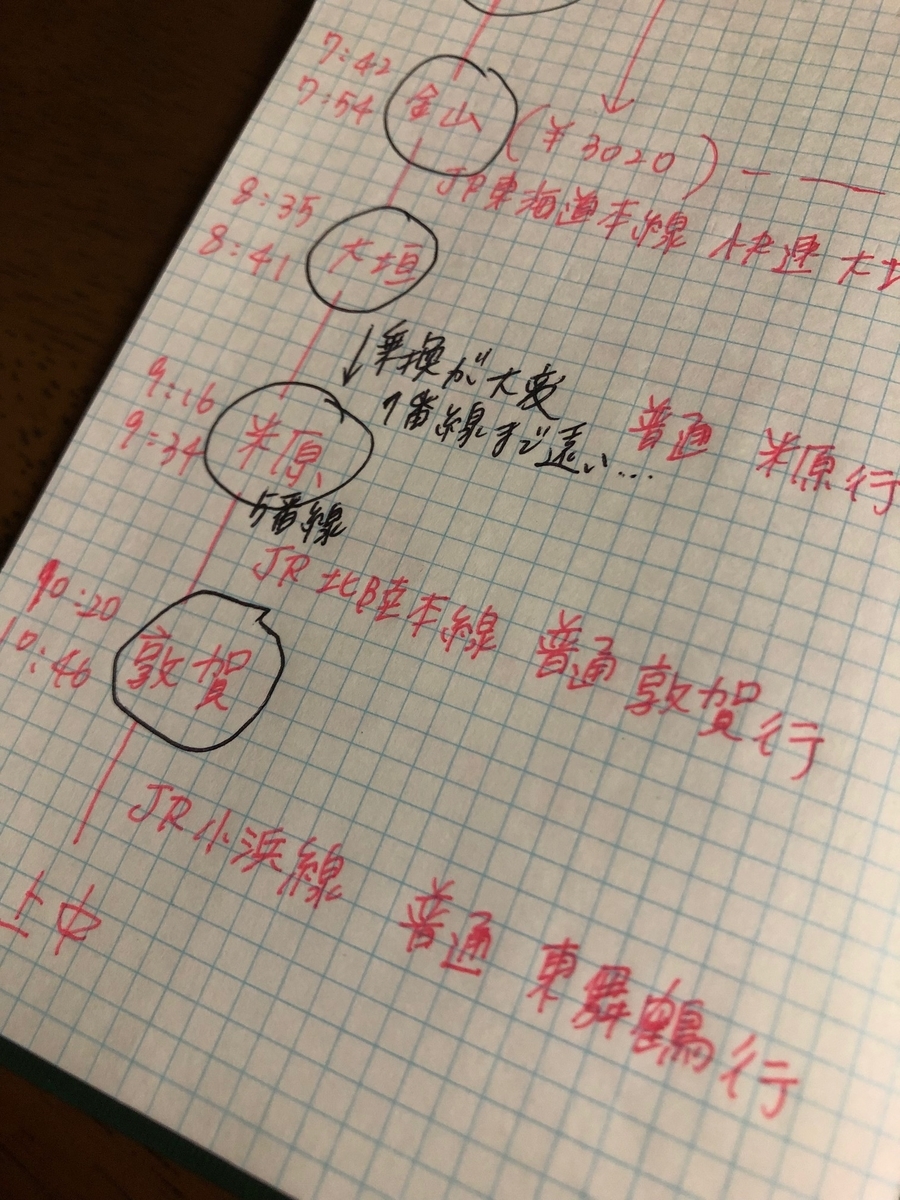 7:42
7:54
金山
(¥3020)
JR東海道本線 快速 大垣
8:35
8:41
大垣
↓乗換が大変
7番線まで遠い…
普通 米原行
9:16
9:34
米原
5番線
JR北陸本線 普通 敦賀行
10:20
10:46
敦賀
JR小浜線 普通 東舞鶴行
上中